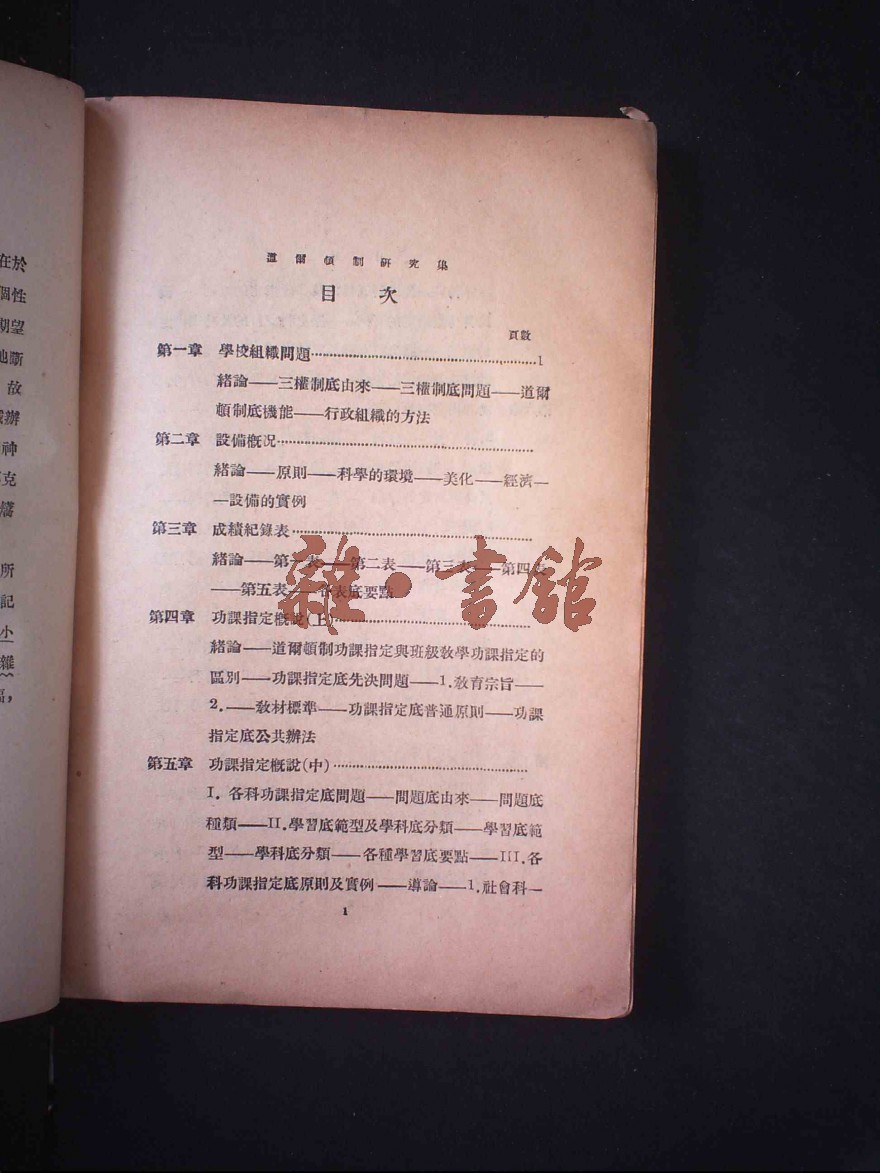 道爾頓制研究集
目次
頁數
第一章 學校組織問題……………………………………1
緒論——三權制底由來——三權制底問題——道爾
頓制底機能——行政組織的方法
第二章 設備概况……………………………………
緒論——原則——科學的環境——美化——經濟—
—設備的實例
第三章 成績紀錄表……………………………………
緒論——第一表——第二表——第三表——第四表
——第五表——各表底要點
第四章 功課指定概說(上)……………………………………
緒論——道爾頓制功課指定與班級敎學功課指定的
區別——功課指定底先決問題——1.敎育宗旨——
2.——敎材標準——功課指定底普通原則——功課
指定底公共辦法
第五章 功課指定概說(中)……………………………………
I.各科功課指定底問題——問題底由來——問題底
種類——II.學習底範型及學科底分類——學習底範
型——學科底分類——各種學習底要點——III.各
科功課指定底原則及實例——導論——1.社會科—
1
在於
個性
期望
故
辦
神
克
所
記
小
雜
雜·書館